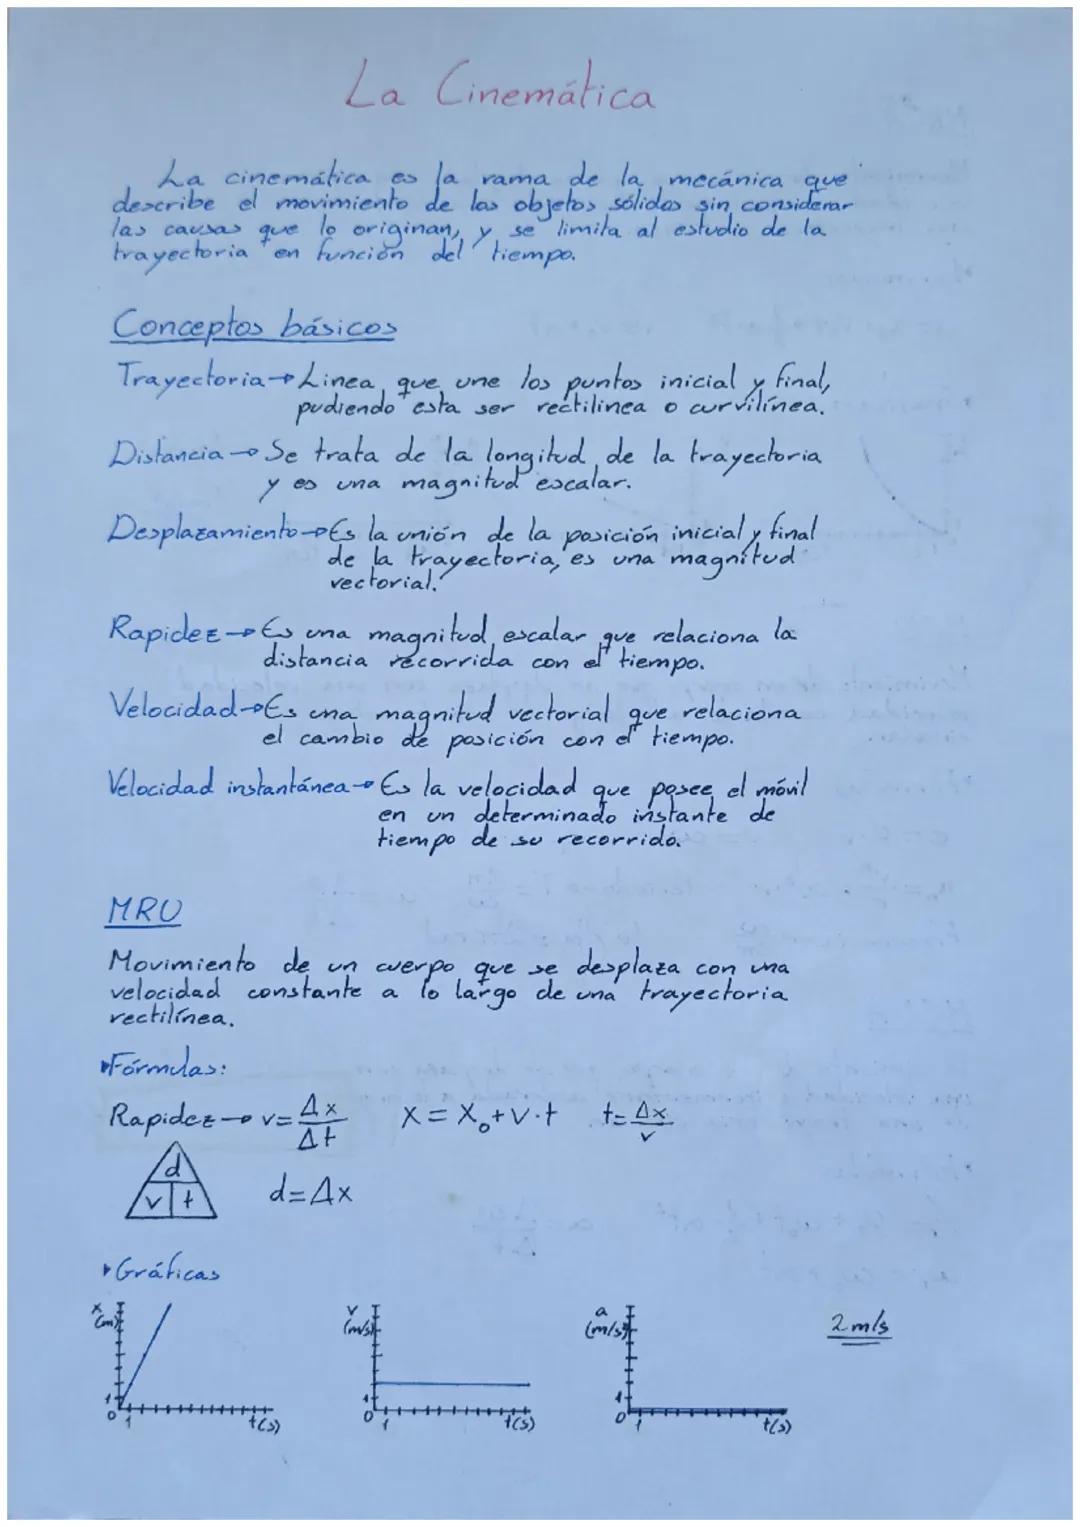 La Cinemática
La cinemática es la rama de la mecánica que
describe el movimiento de los objetos sólidos sin considerar
las causas que lo originan, y se limita al estudio de la
trayectoria en función del tiempo.
Conceptos básicos
Trayectoria→Linea que une los puntos inicial y final,
pudiendo esta ser rectilinea o curvilínea.
Distancia→Se trata de la longitud de la trayectoria
y es una magnitud escalar.
Desplazamiento→Es la unión de la posición inicial y final
de la trayectoria, es una magnitud
vectorial.
Rapidez→Es una magnitud escalar que relaciona la
distancia recorrida con el tiempo.
Velocidad→Es una magnitud vectorial que relaciona
el cambio de posición con el tiempo.
Velocidad instantánea→Es la velocidad que posee el móvil
en un determinado instante de
tiempo de su recorrido.
MRU
Movimiento de un cuerpo que se desplaza con una
velocidad constante a lo largo de una trayectoria
rectilínea.
Fórmulas:
Rapidez→ v=Δx/Δt X=X₀+v·t t=Δx/v
d
v t
d=Δx
Gráficas
x (m) 1 0 1 t(s)
v (m/s) 1 0 1 t(s)
a (m/s²) 1 0 1 t(s)
2 m/s